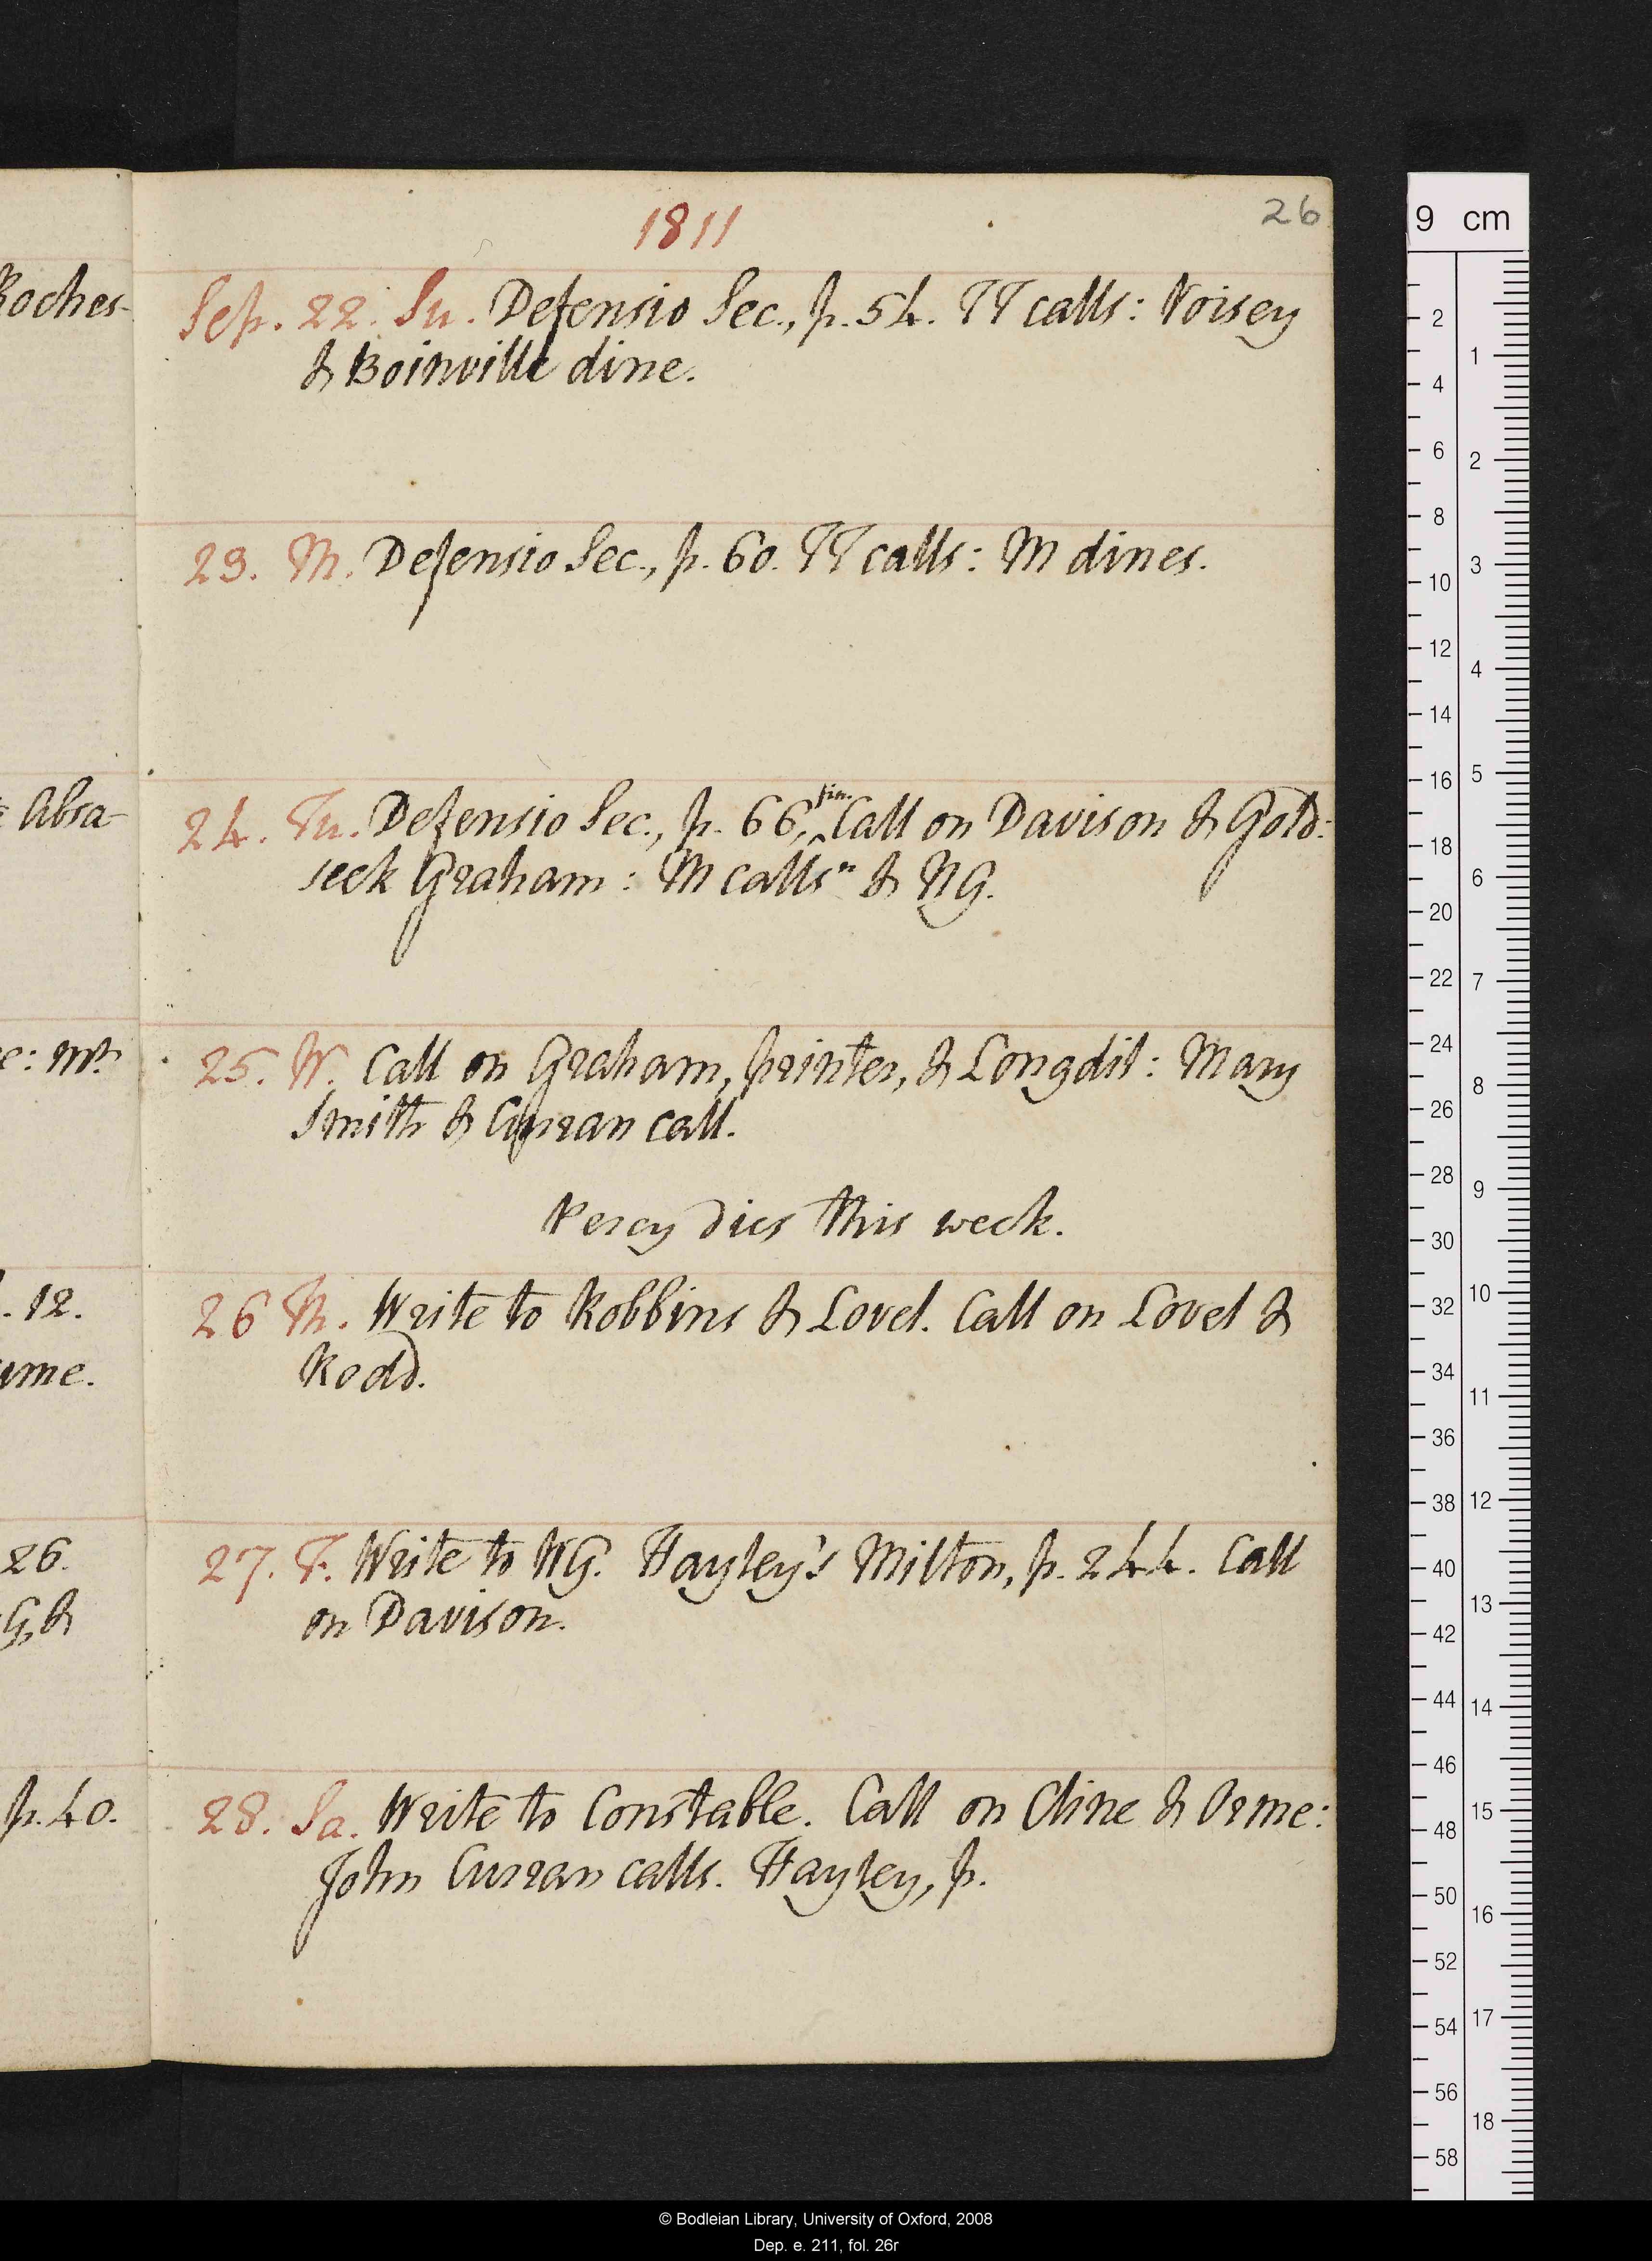 1811
26
Sep. 22. Su. Defensio Sec., p. 54. TT calls: Voisey
& Boinville dine.
23. M. Defensio Sec., p. 60. TT calls: M dines.
24. Tu. Defensio Sec., p. 66, fin. Call on Davison & Gold:
seek Graham: M calls n & NG.
25. W. Call on Graham, printer, & Longdil: Mary
Smith & Curran call.
Percy dies this week.
26 Th. Write to Robbins & Lovel. Call on Lovel &
Rodd.
27. F. Write to WG. Hayley's Milton, p. 244. Call
on Davison.
28. Sa. Write to Constable. Call on Cline & Orme:
John Curran calls. Hayley, p.
Roches-
Absa-
e: Mrs
. 12.
ume.
26.
G, &
p. 40.
9 cm
2
4
6
8
10
12
14
16
18
20
22
24
26
28
30
32
34
36
38
40
42
44
46
48
50
52
54
56
58
1
2
3
4
5
6
7
8
9
10
11
12
13
14
15
16
17
18
© Bodleian Library, University of Oxford, 2008
Dep. e. 211, fol. 26r